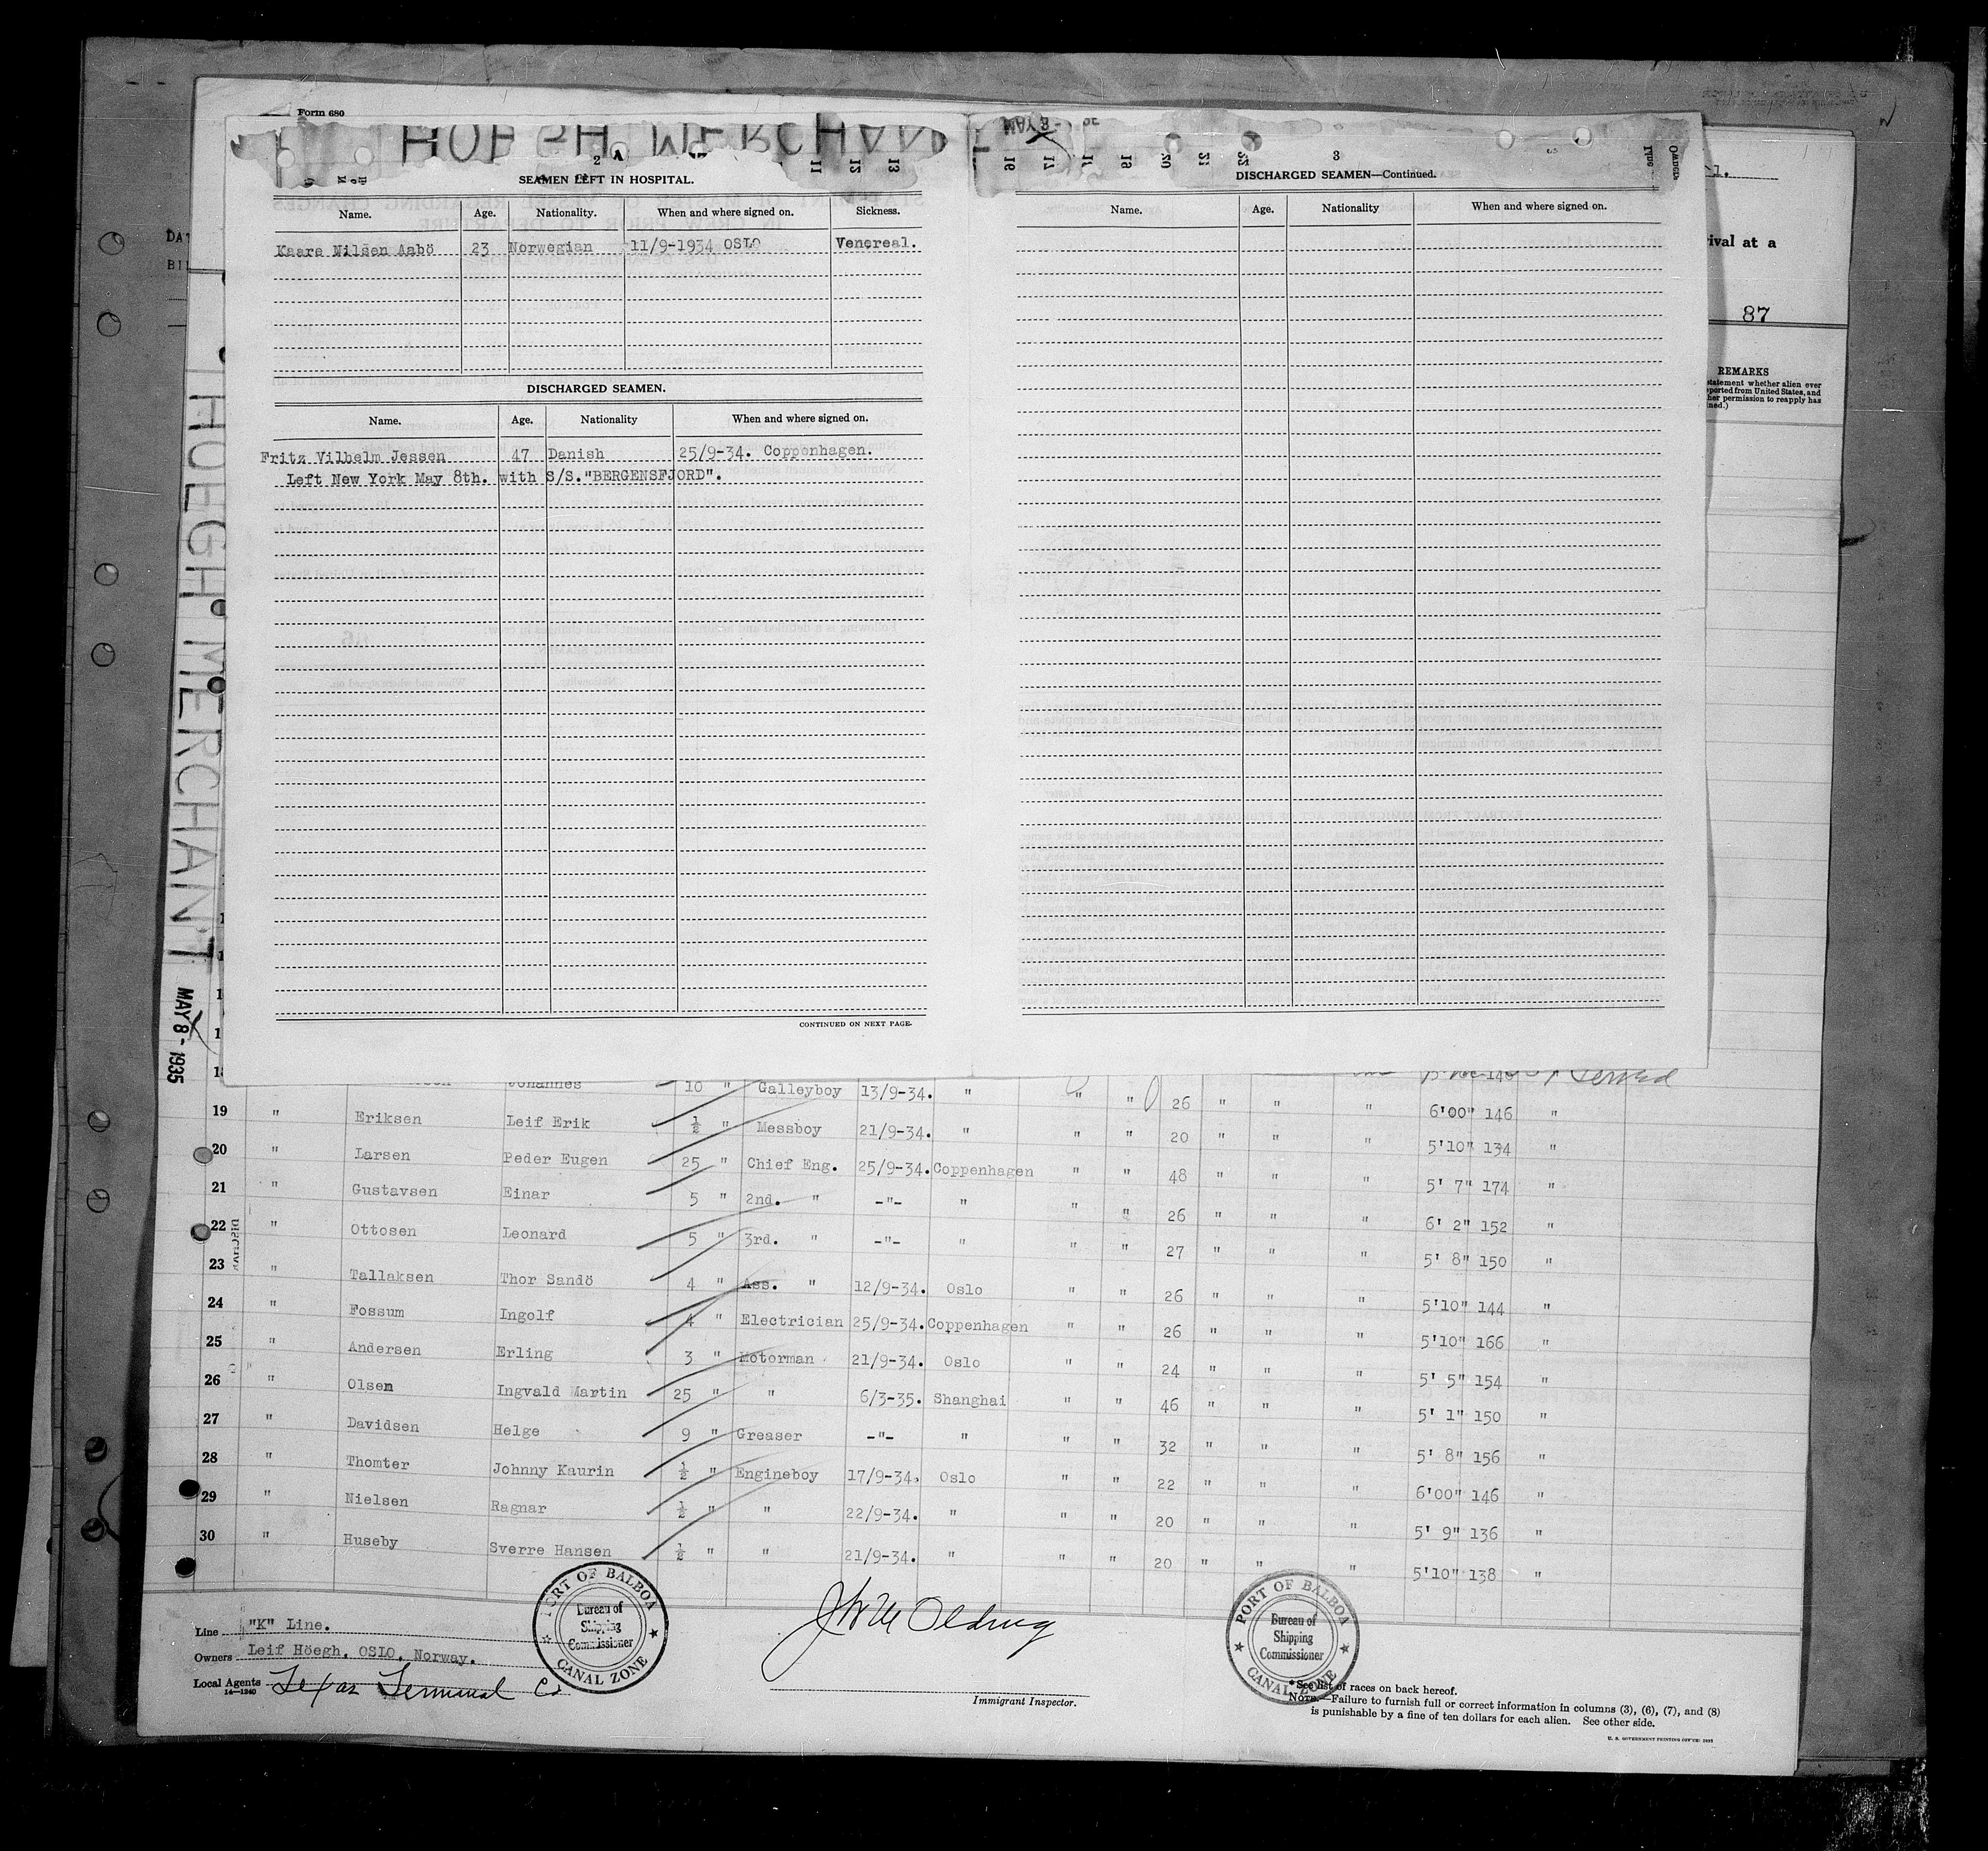 Form 680
HOEGH MERCHANT
MAY 8
2
SEAMEN LEFT IN HOSPITAL.
Name. Age. Nationality. When and where signed on. Sickness.
Kaare Nilsen Aabö 23 Norwegian 11/9-1934 OSLO Venereal.
DISCHARGED SEAMEN.
Name. Age. Nationality When and where signed on.
Fritz Vilhelm Jessen 47 Danish 25/9-34. Coppenhagen.
Left New York May 8th. with S/S."BERGENSFJORD".
CONTINUED ON NEXT PAGE.
3
DISCHARGED SEAMEN—Continued.
Name. Age. Nationality When and where signed on.
rival at a
87
REMARKS
statement whether alien ever
ported from United States, and
her permission to reapply has
ned.)
HOEGH MERCHANT
MAY 8 - 1935
Johannes 10 " Galleyboy 13/9-34. " " " 26 " " " 6'00" 146 "
19 " Eriksen Leif Erik ½ " Messboy 21/9-34. " " " 20 " " " 5'10" 134 "
20 " Larsen Peder Eugen 25 " Chief Eng. 25/9-34. Coppenhagen " " 48 " " " 5' 7" 174 "
21 " Gustavsen Einar 5 " 2nd. " -"- " " " 26 " " " 6' 2" 152 "
22 " Ottosen Leonard 5 " 3rd. " -"- " " " 27 " " " 5' 8" 150 "
23 " Tallaksen Thor Sandö 4 " Ass. " 12/9-34. Oslo " " 26 " " " 5'10" 144 "
24 " Fossum Ingolf 4 " Electrician 25/9-34. Coppenhagen " " 26 " " " 5'10" 166 "
25 " Andersen Erling 3 " Motorman 21/9-34. Oslo " " 24 " " " 5' 5" 154 "
26 " Olsen Ingvald Martin 25 " " 6/3-35. Shanghai " " 46 " " " 5' 1" 150 "
27 " Davidsen Helge 9 " Greaser -"- " " " 32 " " " 5' 8" 156 "
28 " Thomter Johnny Kaurin ½ " Engineboy 17/9-34. Oslo " " 22 " " " 6'00" 146 "
29 " Nielsen Ragnar ½ " " 22/9-34. " " " 20 " " " 5' 9" 136 "
30 " Huseby Sverre Hansen ½ " " 21/9-34. " " " 20 " " " 5'10" 138 "
Line "K" Line.
Owners Leif Höegh, OSLO, Norway.
Local Agents Texas Terminal Co
14—1240
PORT OF BALBOA
Bureau of
Shipping
Commissioner
CANAL ZONE
Immigrant Inspector.
PORT OF BALBOA
Bureau of
Shipping
Commissioner
CANAL ZONE
*See list of races on back hereof.
NOTE.—Failure to furnish full or correct information in columns (3), (6), (7), and (8)
is punishable by a fine of ten dollars for each alien. See other side.
U. S. GOVERNMENT PRINTING OFFICE: